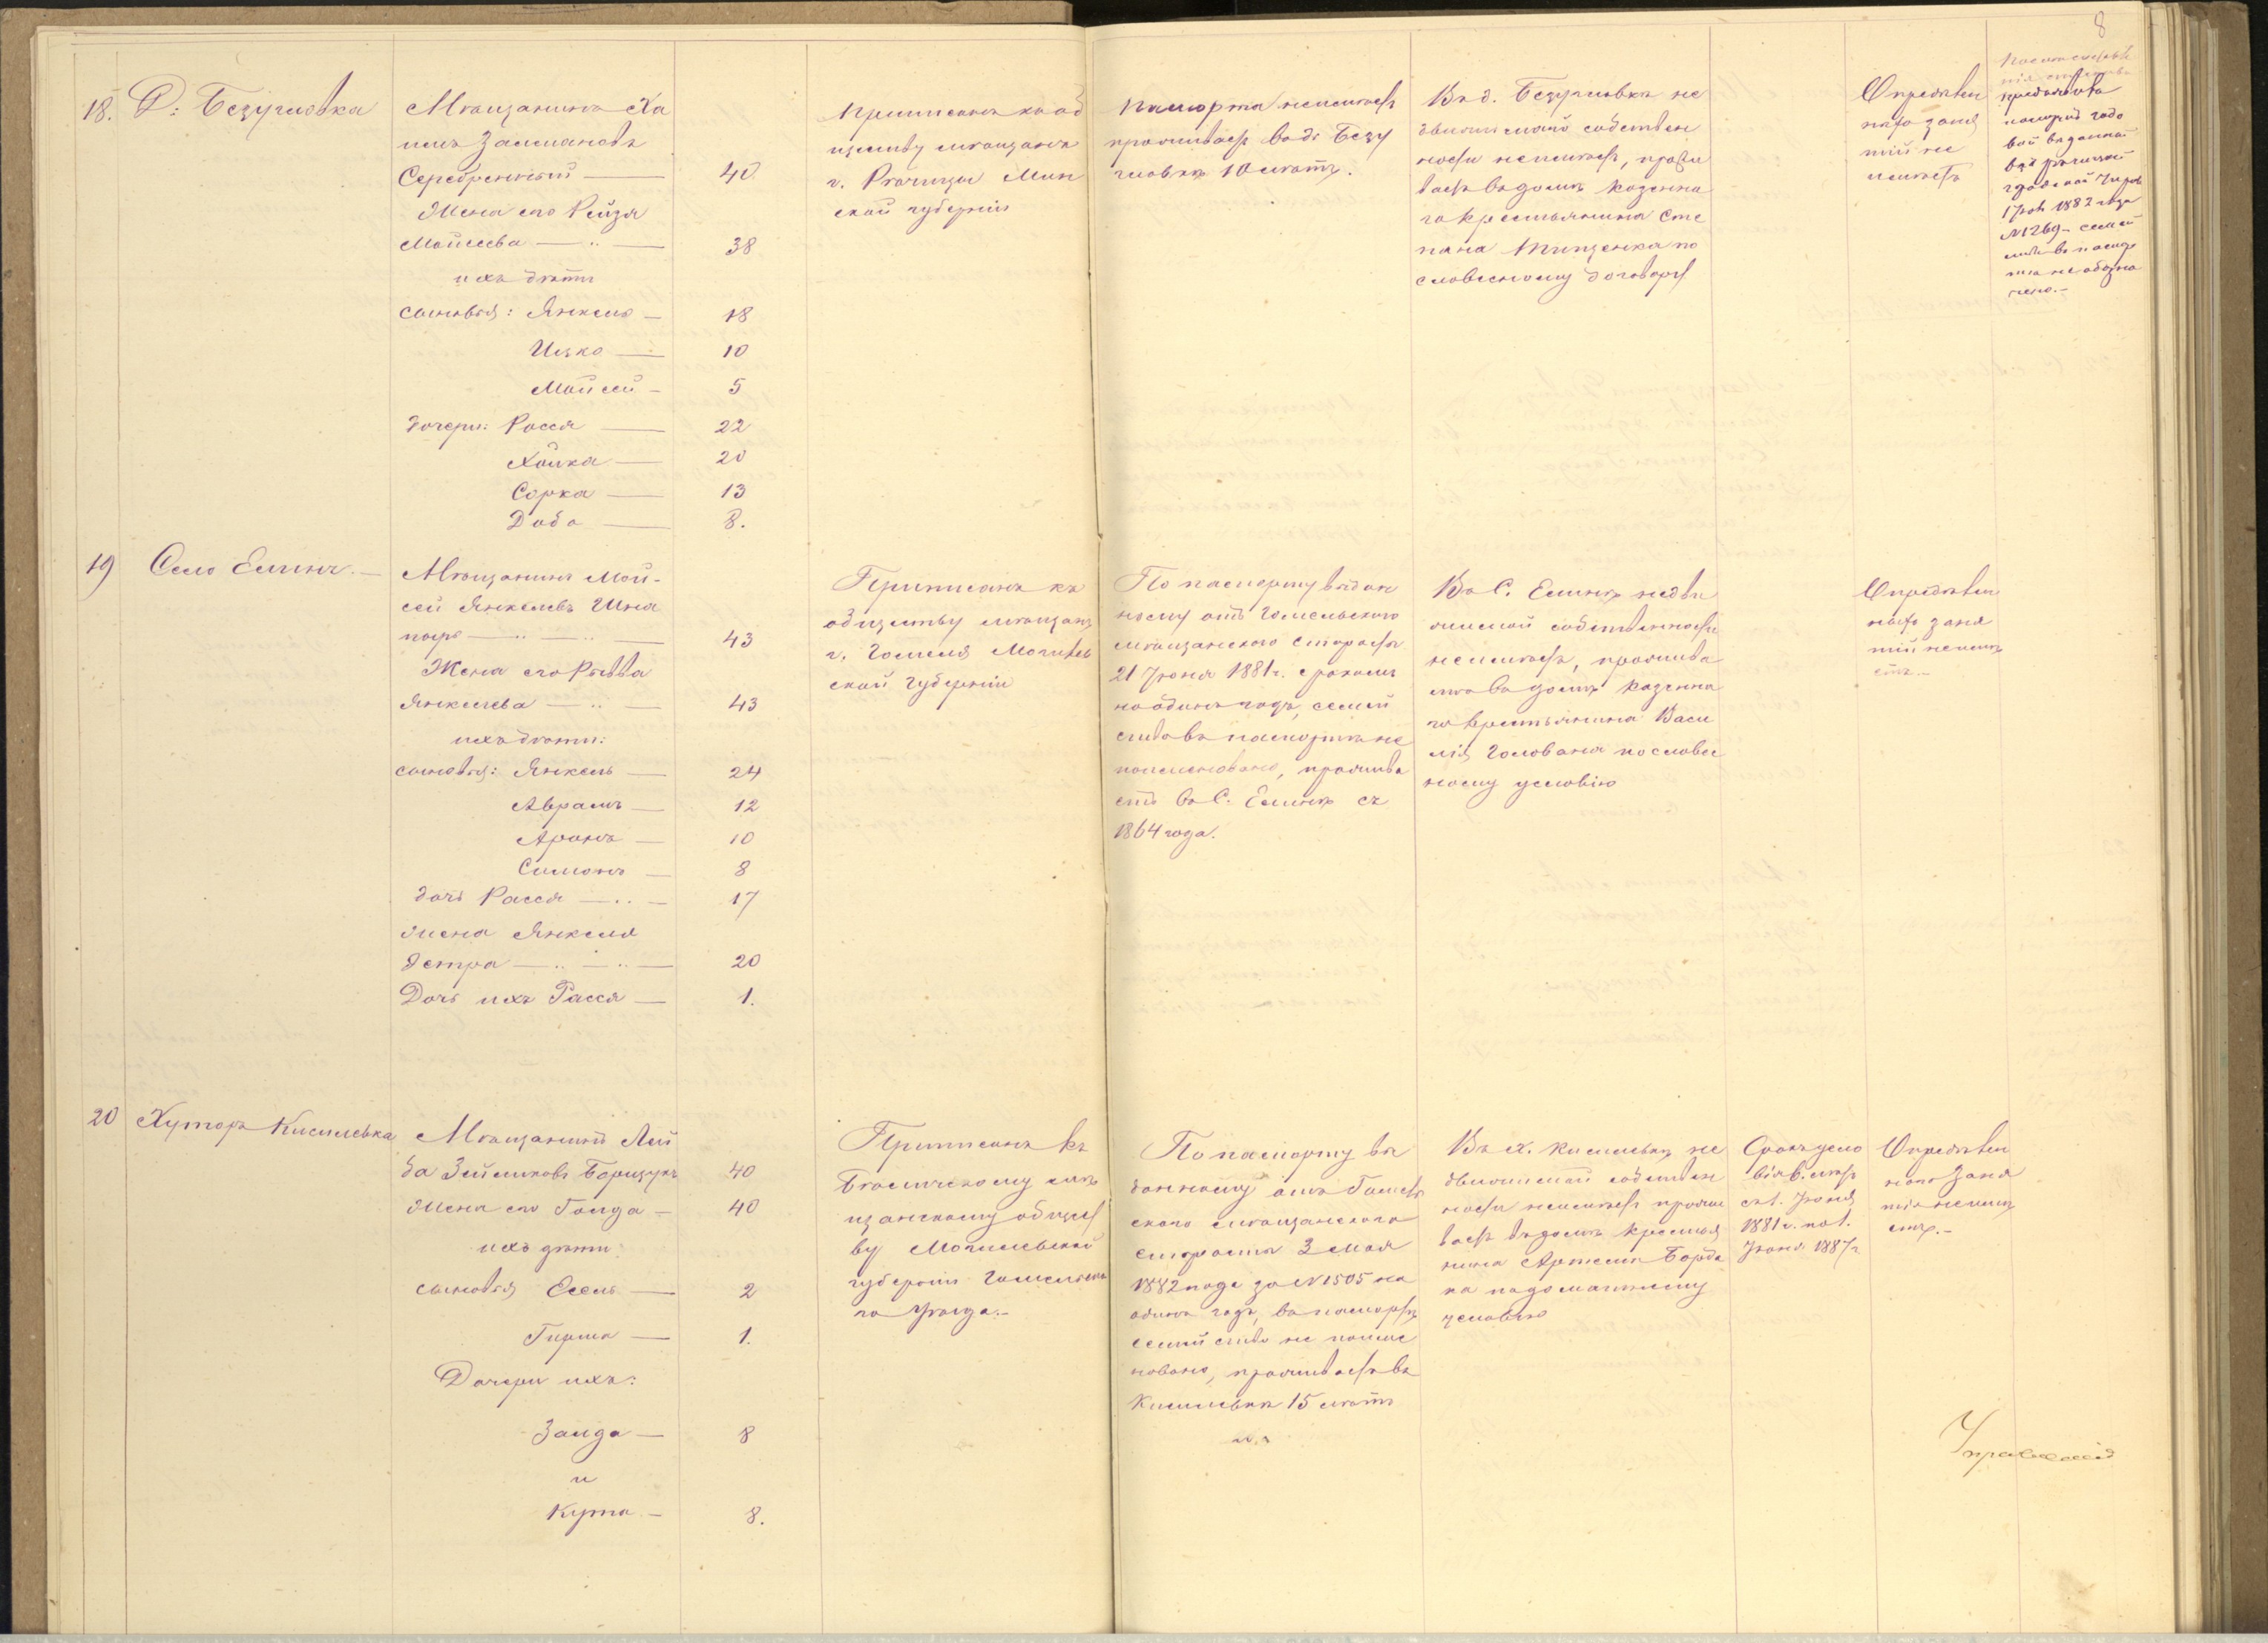 8
18. Д: Безугловка
Мѣщанинъ Ха
имъ Залмановъ
Серебренный — 40
Жена его Рейзя
Мойсеева — 38
ихъ дѣти
сыновья: Янкель — 18
Ицко — 10
Мойсей — 5
дочери: Рося — 22
Хайка — 20
Сорка — 13
Доба — 8.
Приписанъ къ об
ществу мѣщанъ
г. Рѣчицы Мин
ской губерніи
Паспорта неимѣетъ
проживаетъ въ д. Безу
гловкѣ 10 лѣтъ.
Въ д. Безугловкѣ не
движимой собствен
ности неимѣетъ, прожи
ваетъ въ домѣ казенна
го крестьянина Сте
пана Тищенка по
словесному договору
Опредѣлен
ныхъ заня
тій не
имѣетъ
предъявилъ
паспортъ годо
вой выданный
1882 года
№ 1269 — семей
ство въ паспор
тѣ не обозна
чено. —
19 Село Елинъ. —
Мѣщанинъ Мой-
сей Янкелевъ Шна
пиръ — 43
Жена его Рывва
Янкелева — 43
ихъ дѣти:
сыновья: Янкель — 24
Аврамъ — 12
Аронъ — 10
Симонъ — 8
дочь Рася — 17
жена Янкеля
Эстра — 20
Дочь ихъ Рася — 1.
Приписанъ къ
обществу мѣщанъ
г. Гомеля Могилев
ской губерніи
По паспорту выдан
ному отъ Гомельского
мѣщанского старосты
21 Іюня 1881 г. срокомъ
на одинъ годъ, семей
ство въ паспортѣ не
поименовано, прожива
етъ въ С. Елинѣ съ
1864 года.
Въ С. Елинѣ недви
жимой собственности
неимѣетъ, прожива
етъ въ домѣ казенна
го крестьянина Васи
лія Голована по словес
ному условію
Опредѣлен
ныхъ заня
тій неимѣ
етъ. —
20 Хуторъ Кисилевка
Мѣщанинъ Лей
ба Зеймиковъ Борщукъ 40
Жена его Голда — 40
ихъ дѣти:
сыновья Есель — 2
Гирша — 1.
Дочери ихъ:
Золда — 8
и
Кута — 8.
Приписанъ къ
мѣ
щанскому общест
ву Могилевской
губерніи Гомельска
го уѣзда. —
По паспорту вы
данному отъ Гомель
ского мѣщанского
старосты 3 мая
1882 года за № 1505 на
одинъ годъ, въ паспортѣ
семейство не поиме
новано, проживаетъ въ
Кисилевкѣ 15 лѣтъ
Въ х. Кисилевкѣ не
движимой собствен
ности неимѣетъ прожи
ваетъ въ домѣ крестья
нина Артема Борда
ка по домашнему
условію
Срокъ усло
вія 6. лѣтъ
съ 1. Іюня
1881 г. по 1.
Іюня 1887 г
Опредѣлен
ного заня
тія неимѣ
етъ. —